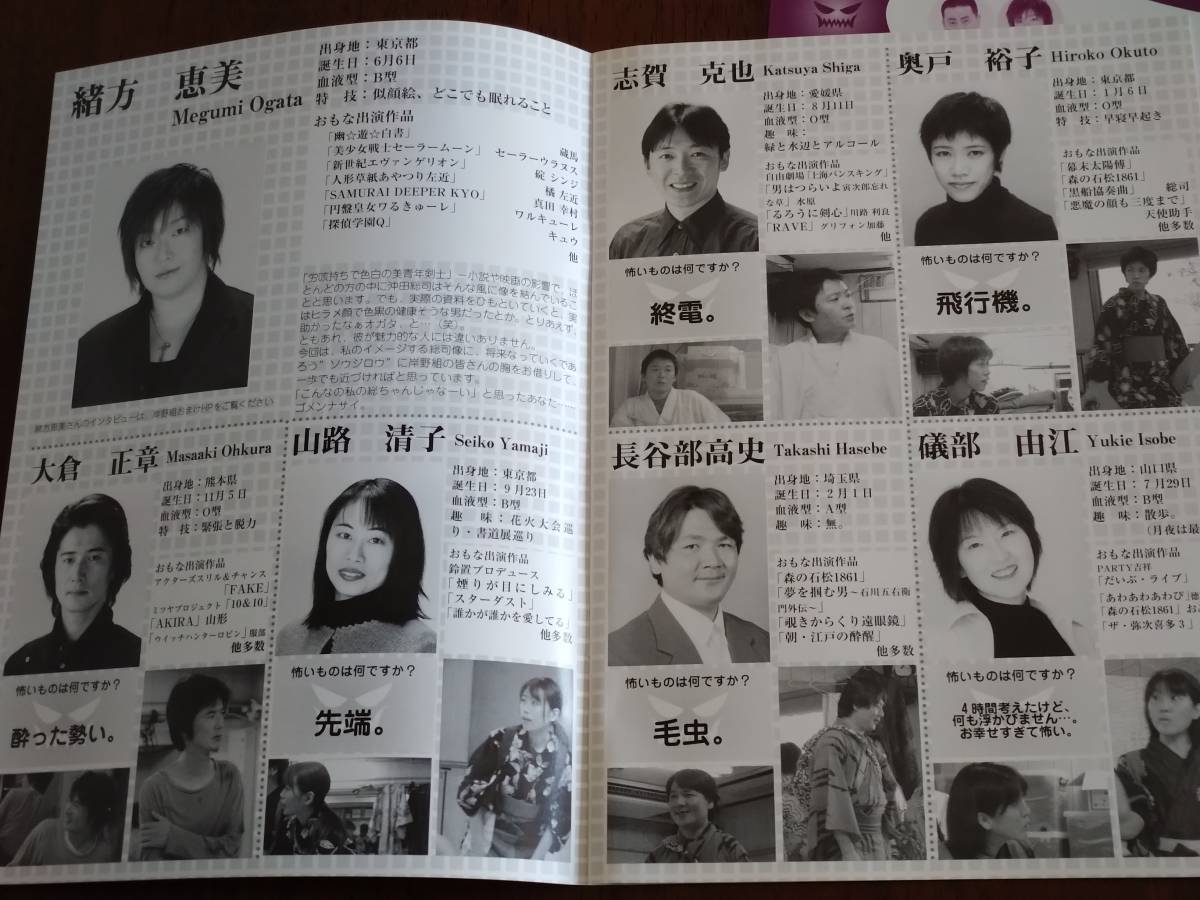 緒方　恵美
Megumi Ogata
出身地：東京都
誕生日：6月6日
血液型：B型
特　技：似顔絵、どこでも眠れること
おもな出演作品
「幽☆遊☆白書」　蔵馬
「美少女戦士セーラームーン」　セーラーウラヌス
「新世紀エヴァンゲリオン」　碇 シンジ
「人形草紙あやつり左近」　橘 左近
「SAMURAI DEEPER KYO」　真田 幸村
「円盤皇女ワるきゅーレ」　ワルキューレ
「探偵学園Q」　キュウ
他
「労咳持ちで色白の美青年剣士」―小説や映画の影響で、ほ
とんどの方の中に沖田総司はそんな風に像を結んでいるこ
とと思います。でも、実際の資料をひもといていくと、実
はヒラメ顔で色黒の健康そうな男だったとか。とりあえず、
助かったなぁオガタ、と…（笑）。
ともあれ、彼が魅力的な人には違いありません。
今回は、私のイメージする総司像に、将来なっていくであ
ろう"ソウジロウ"に岸野組の皆さんの胸をお借りして、
一歩でも近づければと思っています。
「こんなの私の総ちゃんじゃなーい」と思ったあなた……
ゴメンナサイ。
緒方恵美さんのインタビューは、岸野組おまけHPをご覧ください
大倉　正章 Masaaki Ohkura
出身地：熊本県
誕生日：11月5日
血液型：O型
特　技：緊張と脱力
おもな出演作品
アクターズスリル＆チャンス
「FAKE」
ミツヤプロジェクト「10＆10」
「AKIRA」山形
「ウイッチハンターロビン」服部
他多数
怖いものは何ですか？
酔った勢い。
山路　清子 Seiko Yamaji
出身地：東京都
誕生日：9月23日
血液型：B型
趣　味：花火大会巡
り・書道展巡り
おもな出演作品
鈴置プロデュース
「煙りが目にしみる」
「スターダスト」
「誰かが誰かを愛してる」
他多数
怖いものは何ですか？
先端。
志賀　克也 Katsuya Shiga
出身地：愛媛県
誕生日：8月11日
血液型：O型
趣　味：
緑と水辺とアルコール
おもな出演作品
自由劇場「上海バンスキング」
「男はつらいよ寅次郎忘れ
な草」水原
「るろうに剣心」川路 利良
「RAVE」グリフォン加藤
他
怖いものは何ですか？
終電。
奥戸　裕子 Hiroko Okuto
出身地：東京都
誕生日：1月6日
血液型：O型
特　技：早寝早起き
おもな出演作品
「幕末太陽傅」
「森の石松1861」
「黒船協奏曲」　総司
「悪魔の顔も三度まで」
天使助手
他多数
怖いものは何ですか？
飛行機。
長谷部高史 Takashi Hasebe
出身地：埼玉県
誕生日：2月1日
血液型：A型
趣　味：無。
おもな出演作品
「森の石松1861」
「夢を掴む男～石川五右衛
門外伝～」
「覗きからくり遠眼鏡」
「朝・江戸の酔醒」
他多数
怖いものは何ですか？
毛虫。
礒部　由江 Yukie Isobe
出身地：山口県
誕生日：7月29日
血液型：B型
趣　味：散歩。
（月夜は最
おもな出演作品
PARTY吉祥
「だいぶ・ライブ」
「あわあわあわび」徳
「森の石松1861」お
「ザ・弥次喜多3」
怖いものは何ですか？
4時間考えたけど、
何も浮かびません…。
お幸せすぎて怖い。